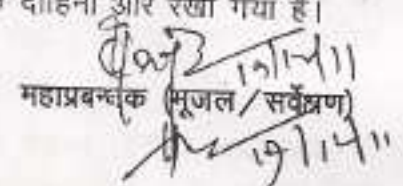 दाहिनी ओर रखा गया है।
19/12/11
महाप्रबन्धक (भूजल/सर्वेक्षण)
19/12/11